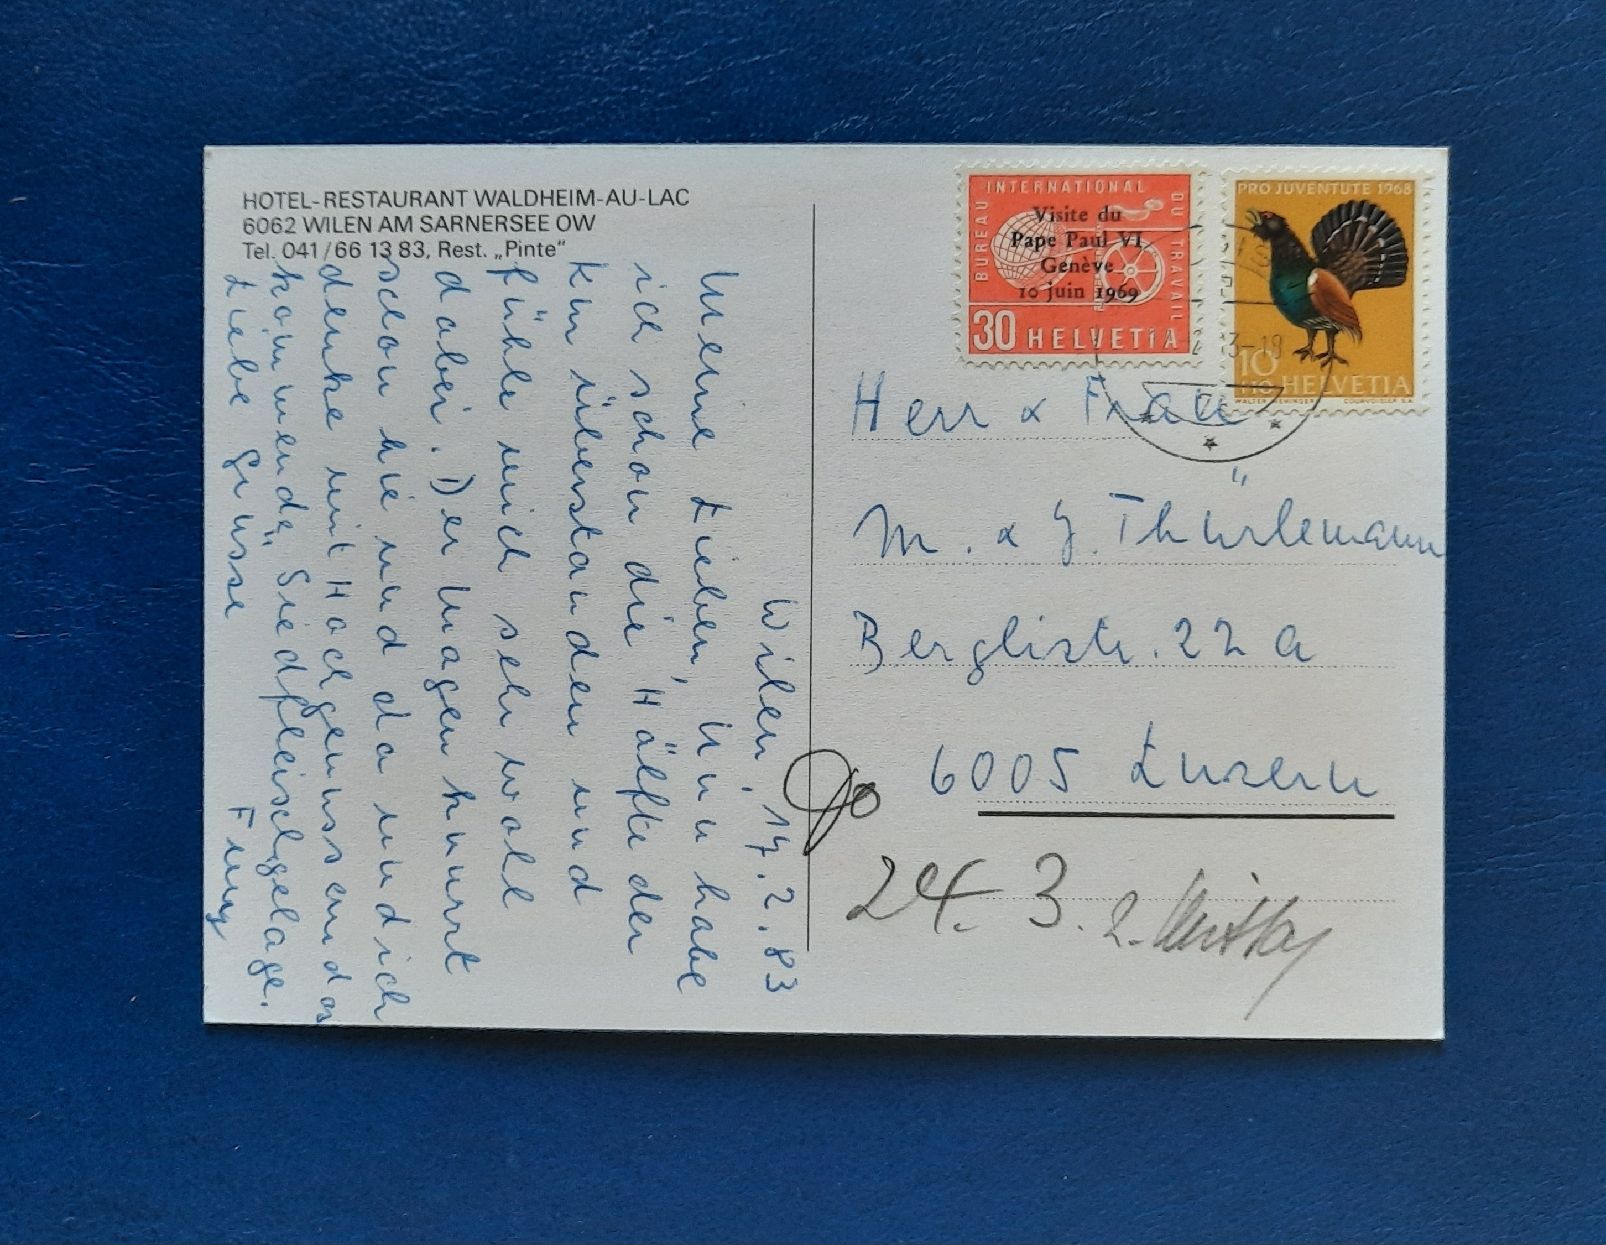 HOTEL-RESTAURANT WALDHEIM-AU-LAC
6062 WILEN AM SARNERSEE OW
Tel. 041/66 13 83, Rest. „Pinte"
Wilen, 14.2.83
Meine Lieben, Nun habe
ich schon die Hälfte der
Kur überstanden und
fühle mich sehr wohl
dabei. Der Magen knurrt
schon hie und da und ich
denke mit Hochgenuss an das
kommende Siedfleischgelage.
Liebe Grüsse
BUREAU INTERNATIONAL DU TRAVAIL
Visite du
Pape Paul VI
Genève
10 juin 1969
30 HELVETIA
PRO JUVENTUTE 1968
10
+10 HELVETIA
COURVOISIER S.A.
Herr & Frau
M. & J. Thürlemann
Berglistr. 22 a
6005 Luzern
24. 3.